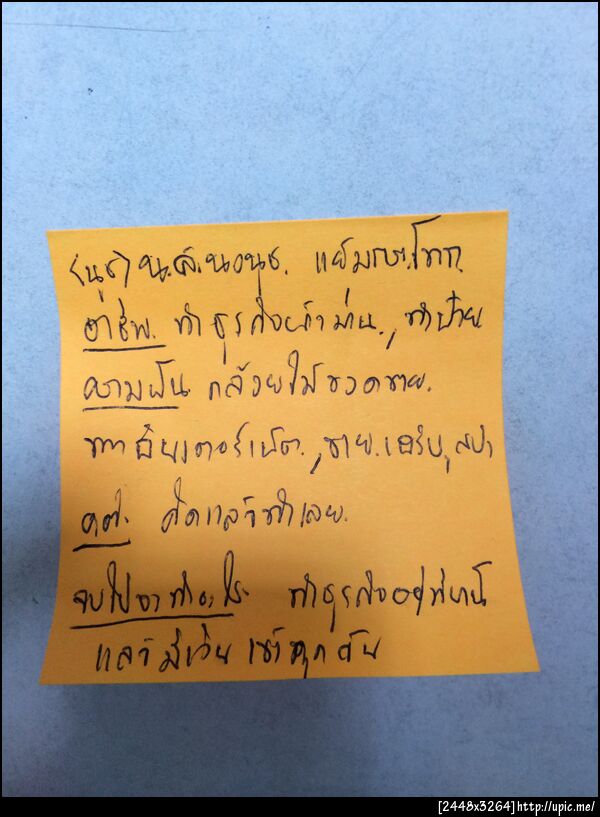 (นุช) น.ส.นงนุช. แย้ม
อาชีพ. ทำธุรกิจผ้าม่าน., ทำป้าย
ความฝัน กล้วยไม้ขวดขาย.
ทางอินเตอร์เน็ต., ขาย., สปา
คติ. คิดแล้วทำเลย.
จบไปจาทำอะไร. ทำธุรกิจอยู่ที่บ้าน
แล้วมีเงินเข้าทุกวัน
[2448x3264]http://upic.me/